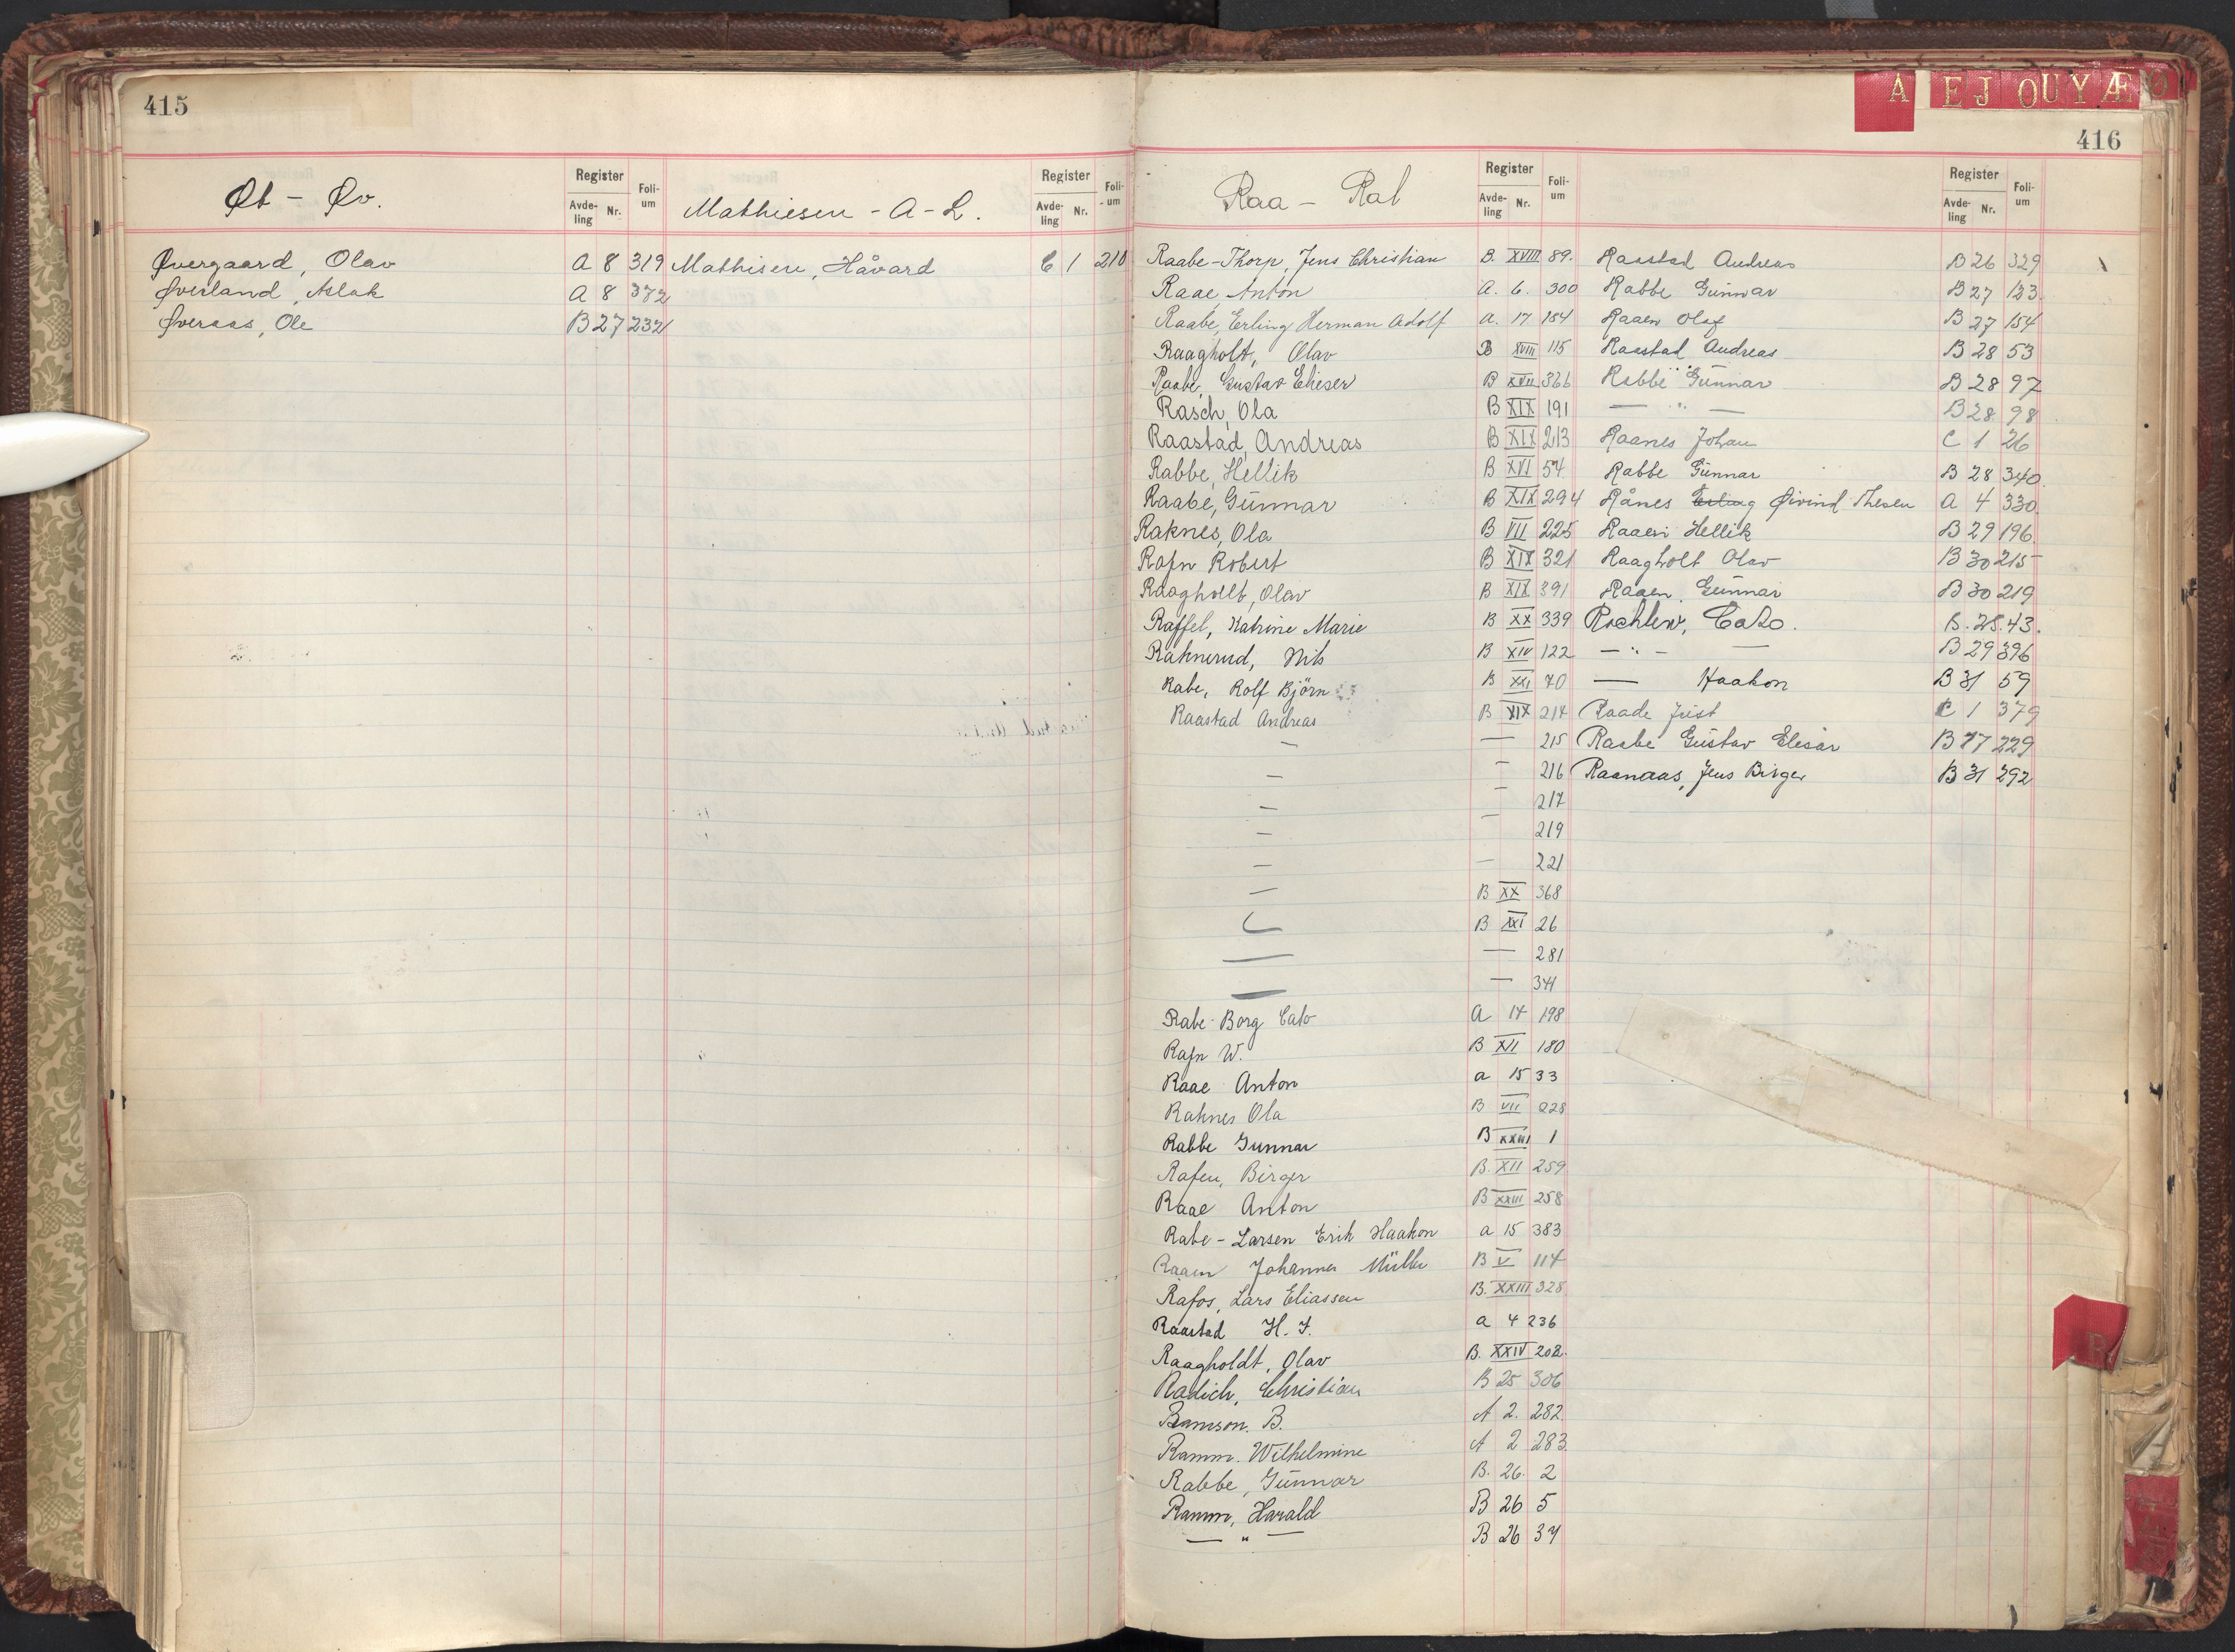 415
Øt - Øv.
Register
Avde-ling Nr.
Foli-um
Øvergaard, Olav A 8 319
Øverland, Aslak A 8 372
Øveraas, Ole B 27 232
Mathiesen - A - L.
Register
Avde-ling Nr.
Foli-um
Mathisen, Håvard C 1 210
A E J O U Y Æ Ø
416
Raa - Ral
Register
Avde-ling Nr.
Foli-um
Raabe-Thorp, Jens Christian B. XVIII 89.
Raae, Anton A. 6. 300
Raabe, Erling Herman Adolf A. 17 154
Raagholt, Olav B XVIII 115
Raabe, Gustav Elieser B XVII 366
Rasch, Ola B XIX 191
Raastad, Andreas B XIX 213
Rabbe, Hellik B XVI 54
Raabe, Gunnar B XIX 294
Raknes, Ola B VII 225
Rafn Robert B XIX 321
Raagholt, Olav B XIX 391
Raffel, Katrine Marie B XX 339
Raknerud, Nils B XIV 122
Rabe, Rolf Björn B XXI 70
Raastad Andreas B XIX 214
— — 215
— — 216
— — 217
— — 219
— — 221
— B XX 368
— B XXI 26
— — 281
— — 341
Rabe-Borg Cato A 14 198
Rafn W. B XII 180
Raae Anton a 15 33
Raknes Ola B VII 228
Rabbe Gunnar B XXIII 1
Rafen, Birger B. XII 259
Raae Anton B XXIII 258
Rabe - Larsen Erik Haakon a 15 383
Raaen Johannes Müller B V 114
Rafos, Lars Eliassen B. XXIII 328
Raastad H. J. a 4 236
Raagholdt, Olav B. XXIV 202.
Radich, Christian B 25 306
Ramson. B. A 2. 282.
Ramm. Wilhelmine A 2 283.
Rabbe, Gunnar B. 26. 2
Ramm, Harald B 26 5
— " — B 26 34
Register
Avde-ling Nr.
Foli-um
Raastad Andreas B 26 329
Rabbe Gunnar B 27 123.
Raaen Olaf B 27 154
Raastad Andreas B 28 53
Rabbe Gunnar B 28 97
— " — B 28 98
Raanes Johan C 1 26
Rabbe Gunnar B 28 340.
Rånes Erling Øivind Thesen A 4 330.
Raaen Hellik B 29 196.
Raagholt Olav B 30 215
Raaen, Gunnar B 30 219
Rachlew, Cato. B. 28. 43.
— " — — B 29 396
— Haakon B 31 59
Raade Just C 1 379
Raabe Gustav Elesar B 17 229
Raanaas, Jens Birger B 31 292
R